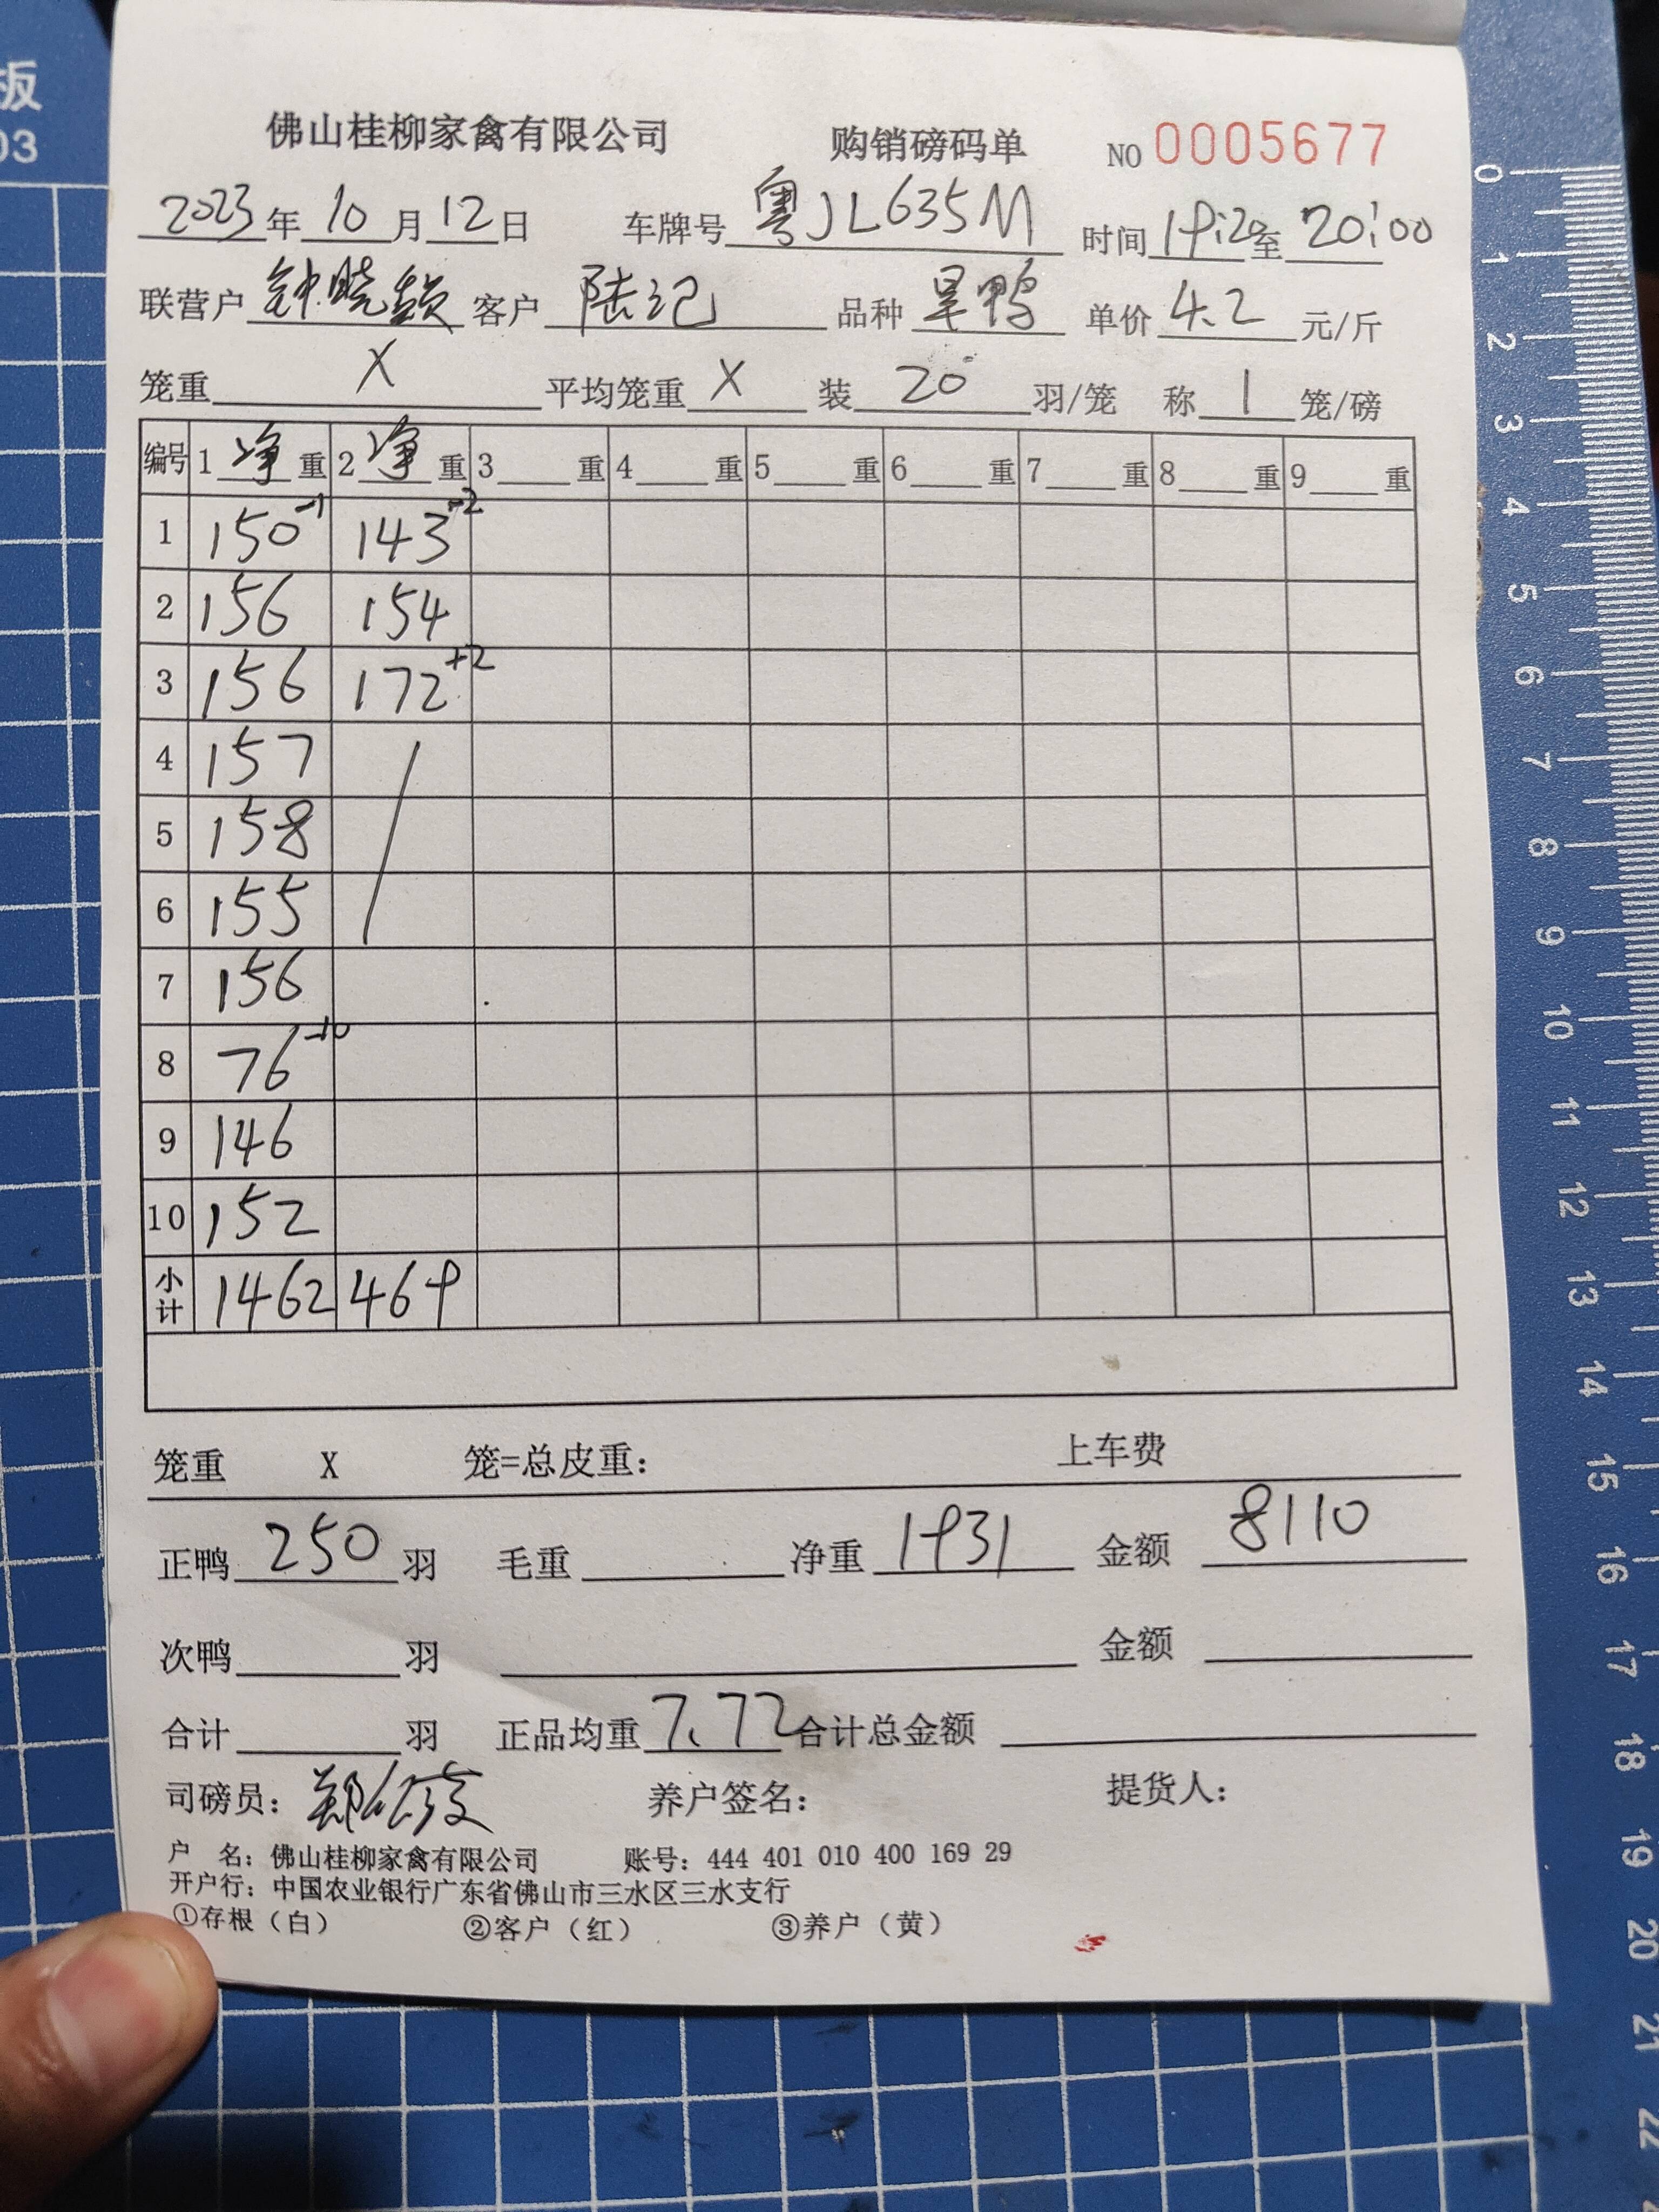 板
03
佛山桂柳家禽有限公司 购销磅码单 NO 0005677
2023年10月12日 车牌号 粤JL635M 时间 19:20至 20:00
联营户 钟晓 客户 陆记 品种 旱鸭 单价 4.2 元/斤
笼重 X 平均笼重 X 装 20 羽/笼 称 1 笼/磅
编号 1 净 重 2 净 重 3 重 4 重 5 重 6 重 7 重 8 重 9 重
1 150 -1 143 -2
2 156 154
3 156 172 +2
4 157
5 158
6 155
7 156
8 76 -10
9 146
10 152
小计 1462 469
笼重 X 笼=总皮重: 上车费
正鸭 250 羽 毛重 净重 1931 金额 8110
次鸭 羽 金额
合计 羽 正品均重 7.72 合计总金额
司磅员: 郑 养户签名: 提货人:
户 名: 佛山桂柳家禽有限公司 账号: 444 401 010 400 169 29
开户行: 中国农业银行广东省佛山市三水区三水支行
①存根(白) ②客户(红) ③养户(黄)
0
1
2
3
4
5
6
7
8
9
10
11
12
13
14
15
16
17
18
19
20
21
22